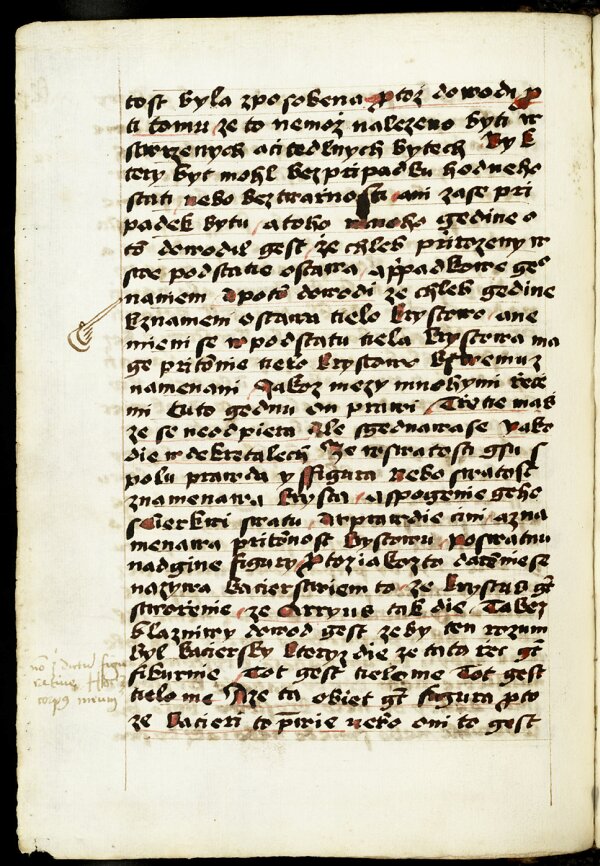 tost byla zposobena ptoz dowody p
ti tomu ze to nemoz nalezeno byti w
stworzenych aci tedlnych bytech By k
tery byt mohl bez pripadku hodneho
stati nebo beztwarnosti ani zase pri
padek bytu a toho mnoho gedine o
to dowodil gest ze chleb prirozeny w
swe podstatie ostawa a ppadkowe ge
namem A poto dowodi ze chleb gedine
k znameni ostawa tielo krystowo ane
mieni se w podstatu tiela krystowa ma
ge pritomne tielo krystowo k
namenani Jakoz mezy mnohymi rzecz
mi tuto gednu on prawi Tretie mas
ze se neodpiera Ale sgednawa se yako
die w dekretalech Ze w swatosti gsu s
polu prawda y ffigura nebo swatost
znamenawa krysta a spogenie geho
s cierkwi swatu A w prawdie cini a zna
menawa pritomnost krystowu po swatnu
nad gine figury P toz iakozto daremne se
nazywa kacierstwiem to ze krystus gt
stworenie ze Arryus tak die Ta bez
blazniwy dowod gest ze by ten rozum
byl kaciersky ktoryz die ze tato rec gt
figurnie Tot gest tielo me Tot gest
tielo me A ze ta obiet gt figura p to
ze kacieri to prwie nebo oni to gest
corpus meum